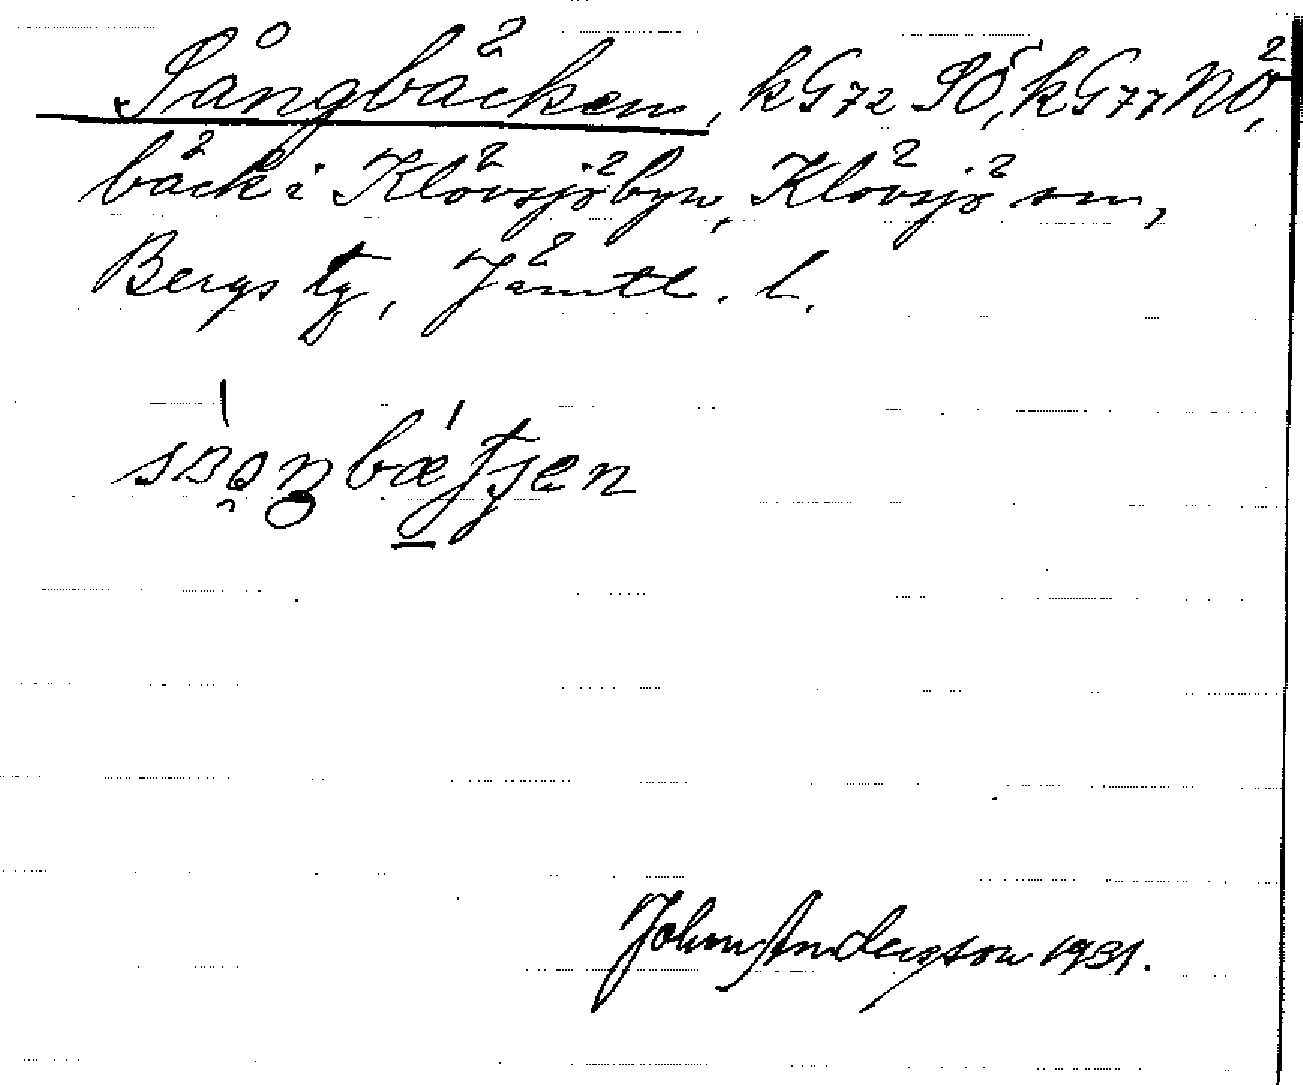 Sångbäcken, kG72 SÖ, kG77 NÖ,
bäck i Klövsjöbyn, Klövsjö sn,
Bergs tg, Jämtl. l.
John Andersson 1931.